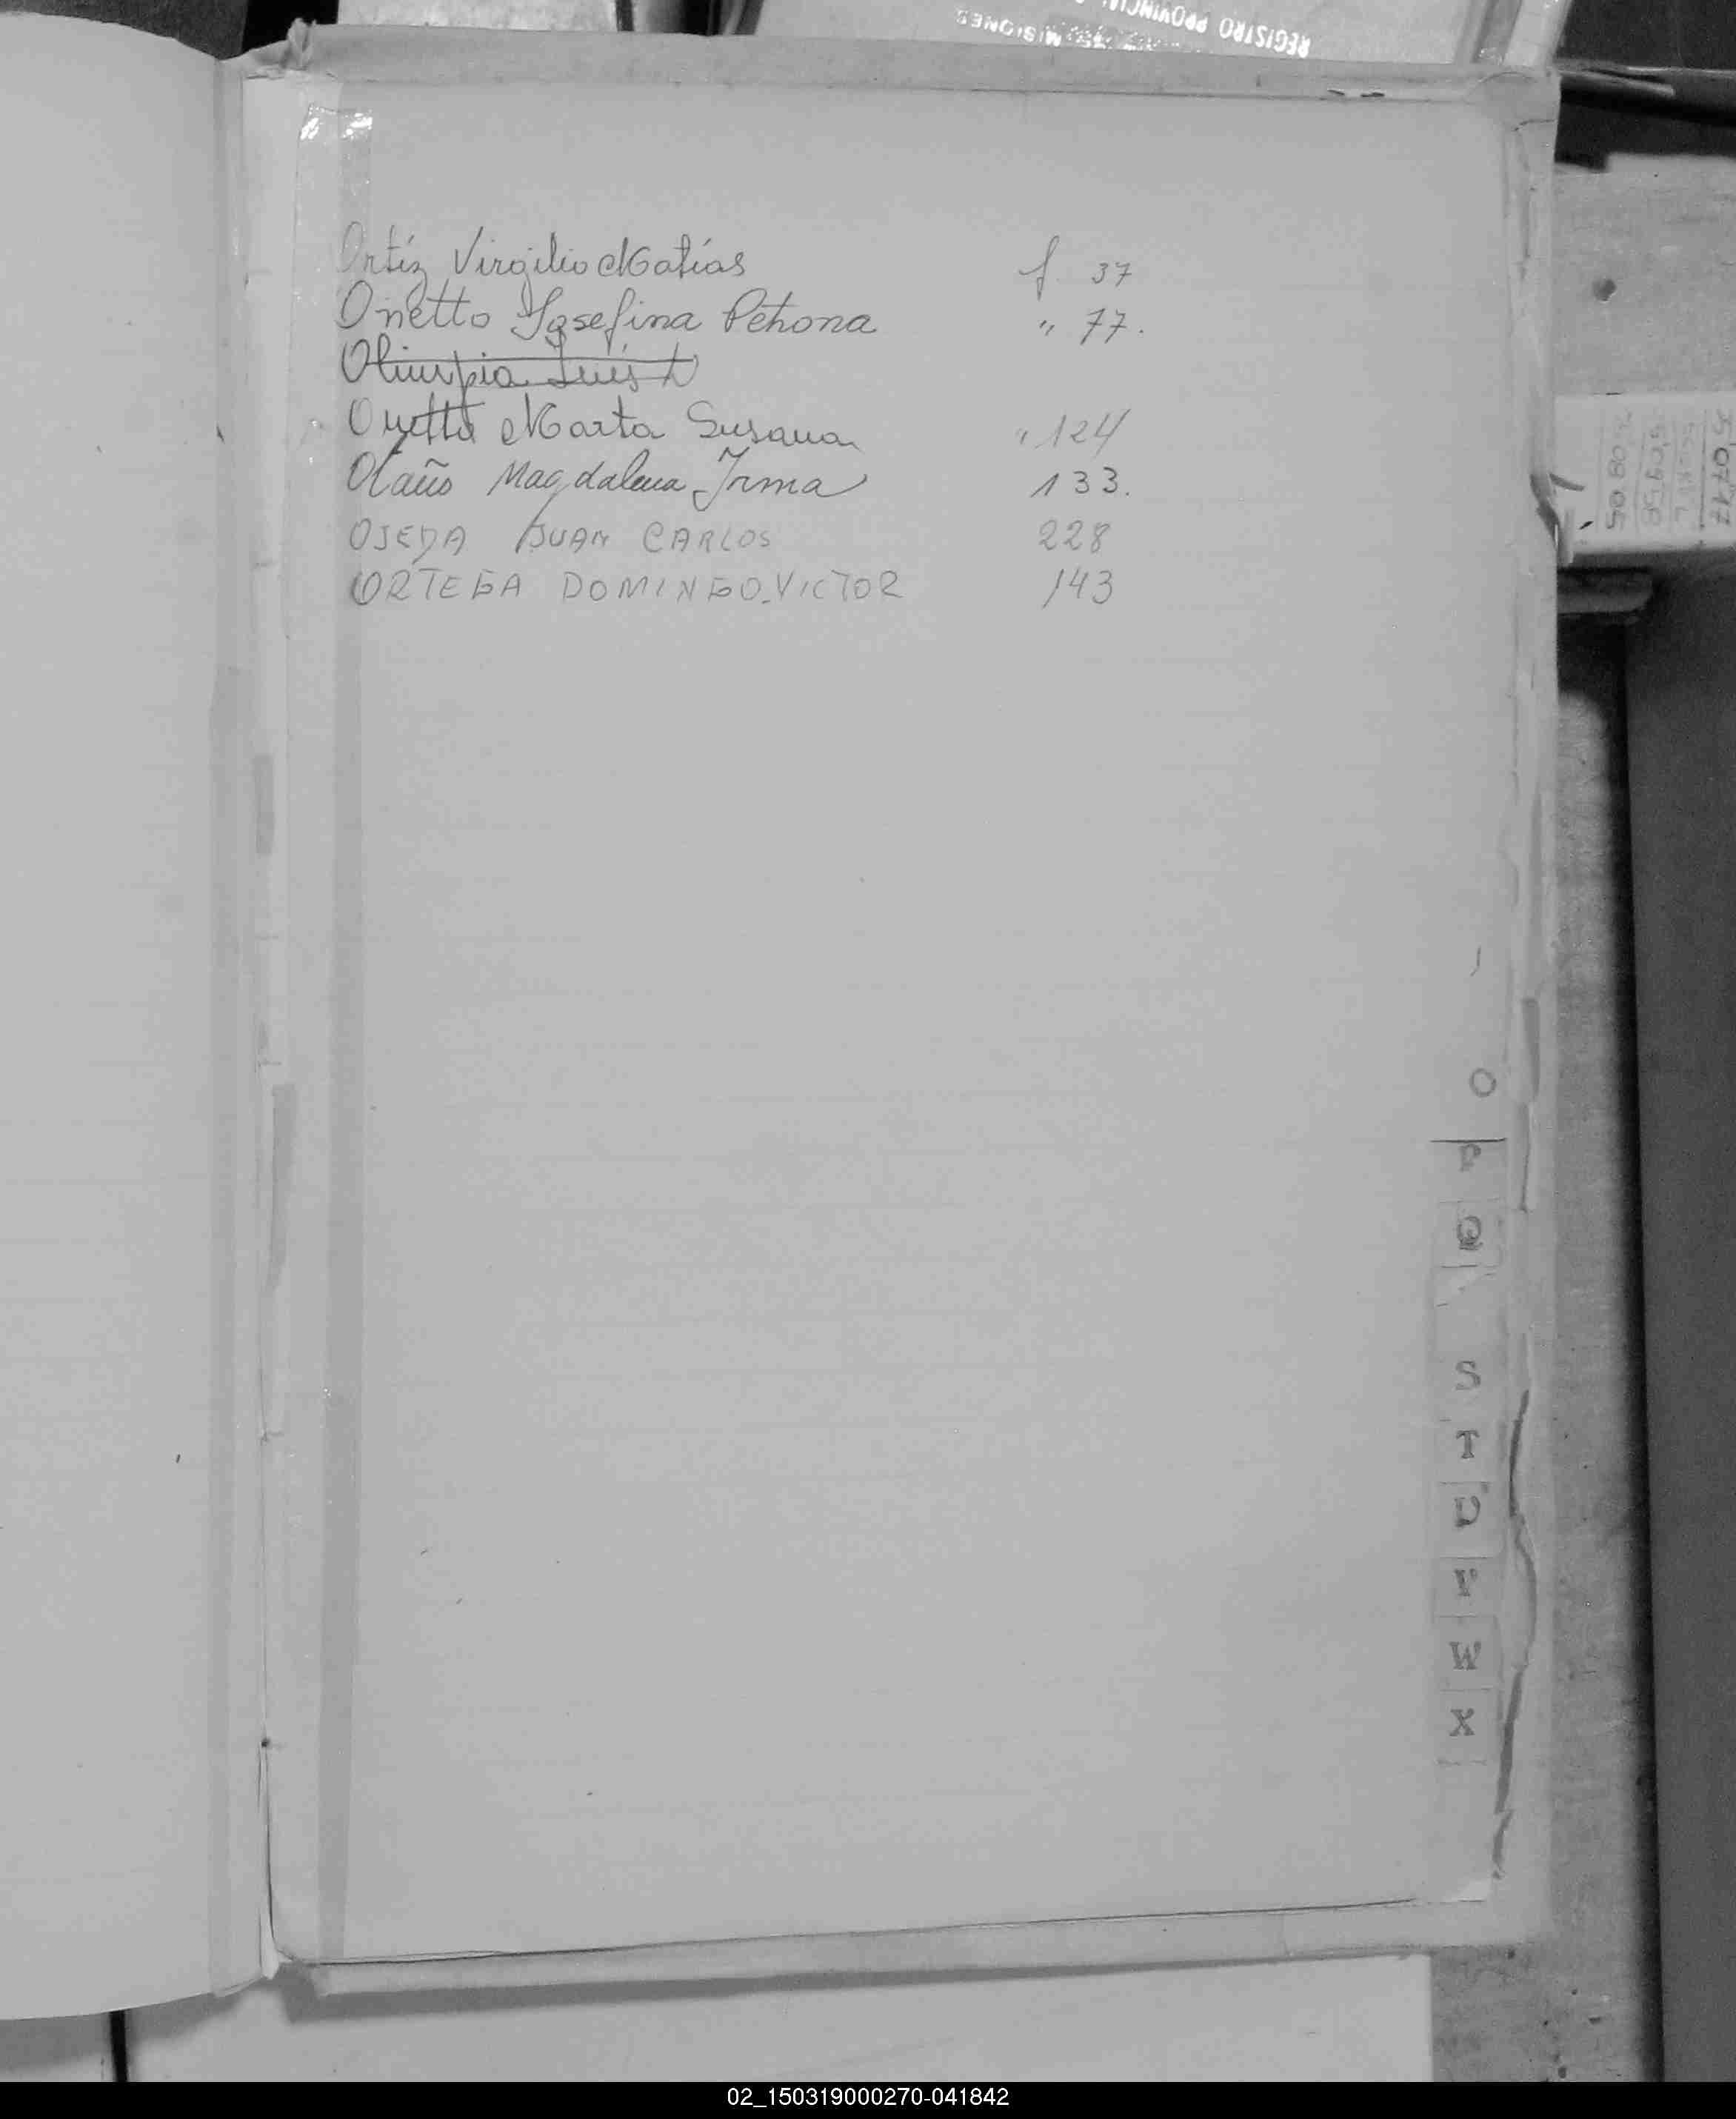 REGISTRO PROVINCIAL
MISIONES
Ortíz Virgilio Matías f. 37
Onetto Josefina Petrona " 77.
Olimpia Luis
Onetto Marta Susana " 124
Olaño Magdalena Irma 133.
OJEDA JUAN CARLOS 228
ORTEGA DOMINGO VICTOR 143
O
P
Q
S
T
U
V
W
X
02_150319000270-041842